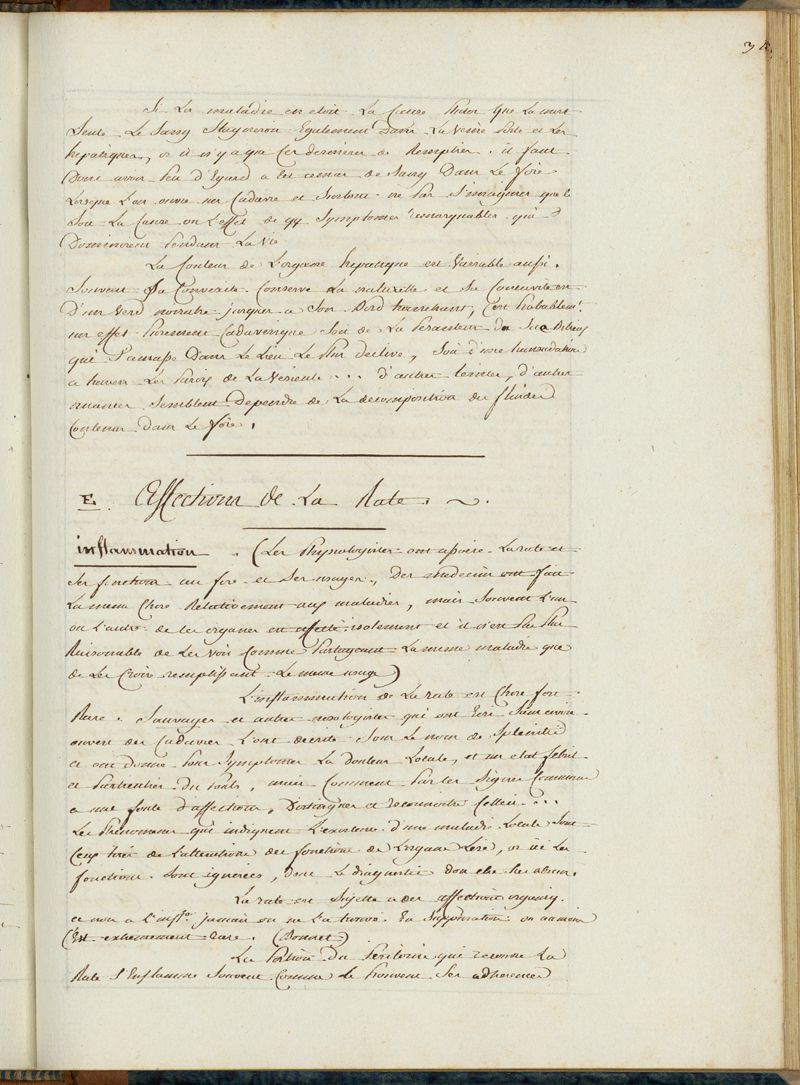 Si La maladie en etoit La Cause plutot que La mort
Seule Le Sang Stagneroit Egalement Dans La Veine porte et Les
hepatiques, or il n'y a que Ces dernieres de Remplies. il faut
Donc avoir peu d'Egard a Cet amas de Sang Dans Le foie
Lorsque L'on ouvre un Cadavre et Surtout ne pas S'imaginer que c
Soit La Cause ou L'effet de qq Symptomes remarquables qui
Dominerent pendant La Vie
La Couleur de L'organe hepatique est Variable aussi.
Souvent Sa Convexité Conserve La naturelle et Sa Concavité est
D'un Verd noiratre jusques a Son Bord tranchant, C'est probablemt.
un effet purement Cadaverique Soit de La pesanteur du Suc Bilieux
qui S'amasse Dans Le Lieu Le plus declive, Soit d'une transudation
a travers Les parois de La Vesicule ... d'autres teintes, d'autres
nuances Semblent Dependre de La decomposition des fluides
Contenus Dans Le foie.
E. Affections de La Rate.
inflammation. (Les Physiologistes ont associé La rate et
Ses fonctions au foie et Ses usages, Des medecins ont fait
La meme Chose Relativement aux maladies, mais Souvent L'un
ou L'autre de Ces organes est affecté isolement et il n'est pas plus
Raisonable de Les Voir Comme partageant La meme maladie que
de Les Croire remplissant Le meme usage)
L'inflammation de La rate est Chose fort
Rare. Sauvages et autres nosologistes qui ont Ecrit Sans avoir
ouvert des Cadavres L'ont decrite Sous Le nom de Splenitie
et ont donné pour Symptomes La douleur Locale, et un etat febril
et particulier du pouls, mais Comment par les Signes Communs
a une foule d'affections, Distinguer et reconnoitre Celleci....
Les Phenomenes qui indiquent L'existence d'une maladie Locale Sont
Ceux tirés de L'alteration des fonctions de L'organe Lesé, or ici Les
fonctions Sont ignorées, donc Le diagnostic doit etre tres obscur.
La rate est Sujette a des affections
et non a L'inflon. jamais on ne L'a trouvé En Suppuration ou au moins
C'est extremement rare. (Bonnet)
La Portion du Peritoine qui recouvre La
Rate S'Enflamme Souvent Comme le prouvent Ses adherences